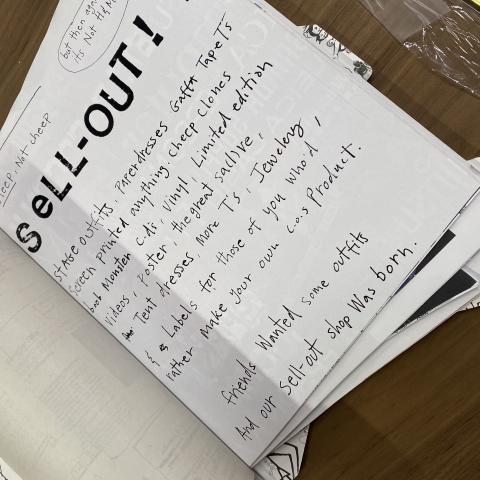 but then again
its Not H&M
cheep, Not cheep
SeLL-OUT!
STAGE OUTfits, Paperdresses Gaffa Tape Ts
Screen printed anything, Cheep Clones
Monster c.d.i, Vinyl, Limited edition
Videos, Poster, the great sac(live,
Tent dresses, More T's, Jewelery,
& s Labels for those of you who'd
rather make your own c.o.s Product.
friends Wanted some outfits
And our Sell-out shop Was born.